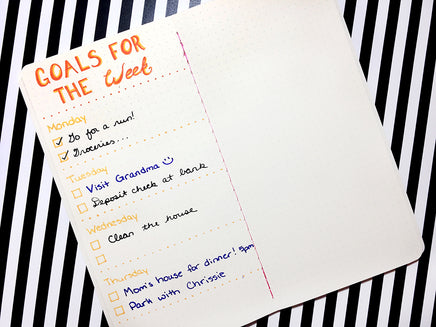 GOALS FOR
THE Week
Monday
Go for a run!
Groceries...
Tuesday
Visit Grandma
Deposit check at bank
Wednesday
Clean the house
Thursday
Mom's house for dinner! 5pm
Park with Chrissie